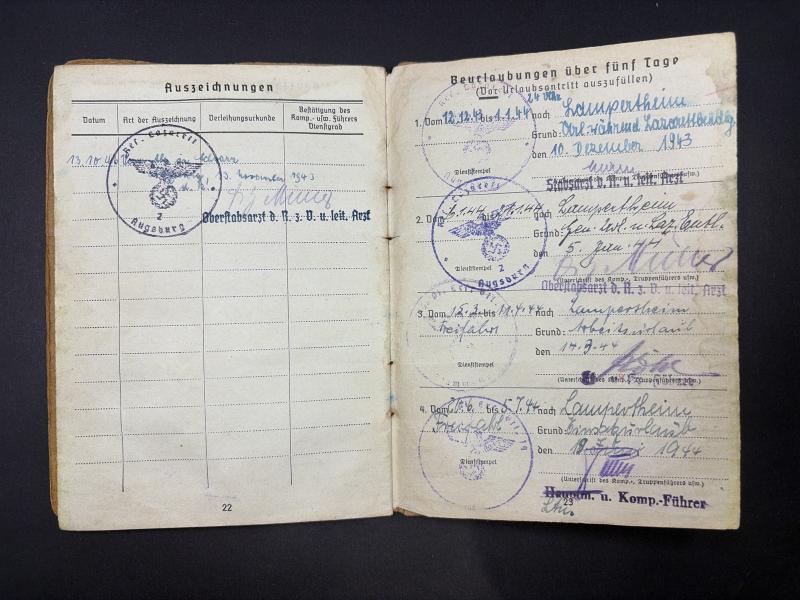 Auszeichnungen
Datum
Art der Auszeichnung
Verleihungsurkunde
Bestätigung des Komp.- usw. Führers Dienstgrad
13.10.
Res. Lazarett
2
Augsburg
November 1943
Oberstabsarzt d. R. z. V. u. leit. Arzt
22
Beurlaubungen über fünf Tage
(Vor Urlaubsantritt auszufüllen)
24 Uhr
1. Vom 12.12.43 bis 1.1.44 nach Lampertheim
Grund: während
den 10. Dezember 1943
Dienststempel
Stabsarzt d. R. u. leit. Arzt
2. Vom bis 1.44 nach Lampertheim
Grund: Gen. Url. u. Laz. Entl.
den 5. Jan. 44
Dienststempel
2
Augsburg
(Unterschrift des Komp.-, Truppenführers usw.)
Oberstabsarzt d. R. z. V. u. leit. Arzt
3. Vom 15.3. bis 11.4.44 nach Lampertheim
Freifahrt
Grund: Arbeitsurlaub
den 14.3.44
Dienststempel
(Unterschrift des Komp.-, Truppenführers usw.)
4. Vom bis 5.7.44 nach Lampertheim
Grund: Einsatzurlaub
den 1944
Dienststempel
(Unterschrift des Komp.-, Truppenführers usw.)
Hauptm. u. Komp.-Führer
Ltn.
23